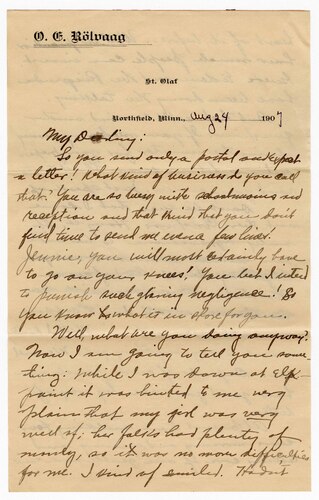 O. E. Rölvaag
St. Olaf
Northfield, Minn., Aug 29 1907
My Darling:
So you send only a postal and expect
a letter! What kind of business do you call
that? You are so busy with schoolmams and
reception and that kind that you don't
find time to send me even a few lines!
Jennie, you will most certainly have
to go on your knees! You bet I intend
to punish such glaring negligence! So
you know what is in store for you.
Well, what are you doing anyway?
Now I am going to tell you some-
thing: While I was down at Elk-
point it was hinted to me very
plain that my girl was very
well off; her folks had plenty of
money, so it was no more difficulties
for me. I kind of smiled.